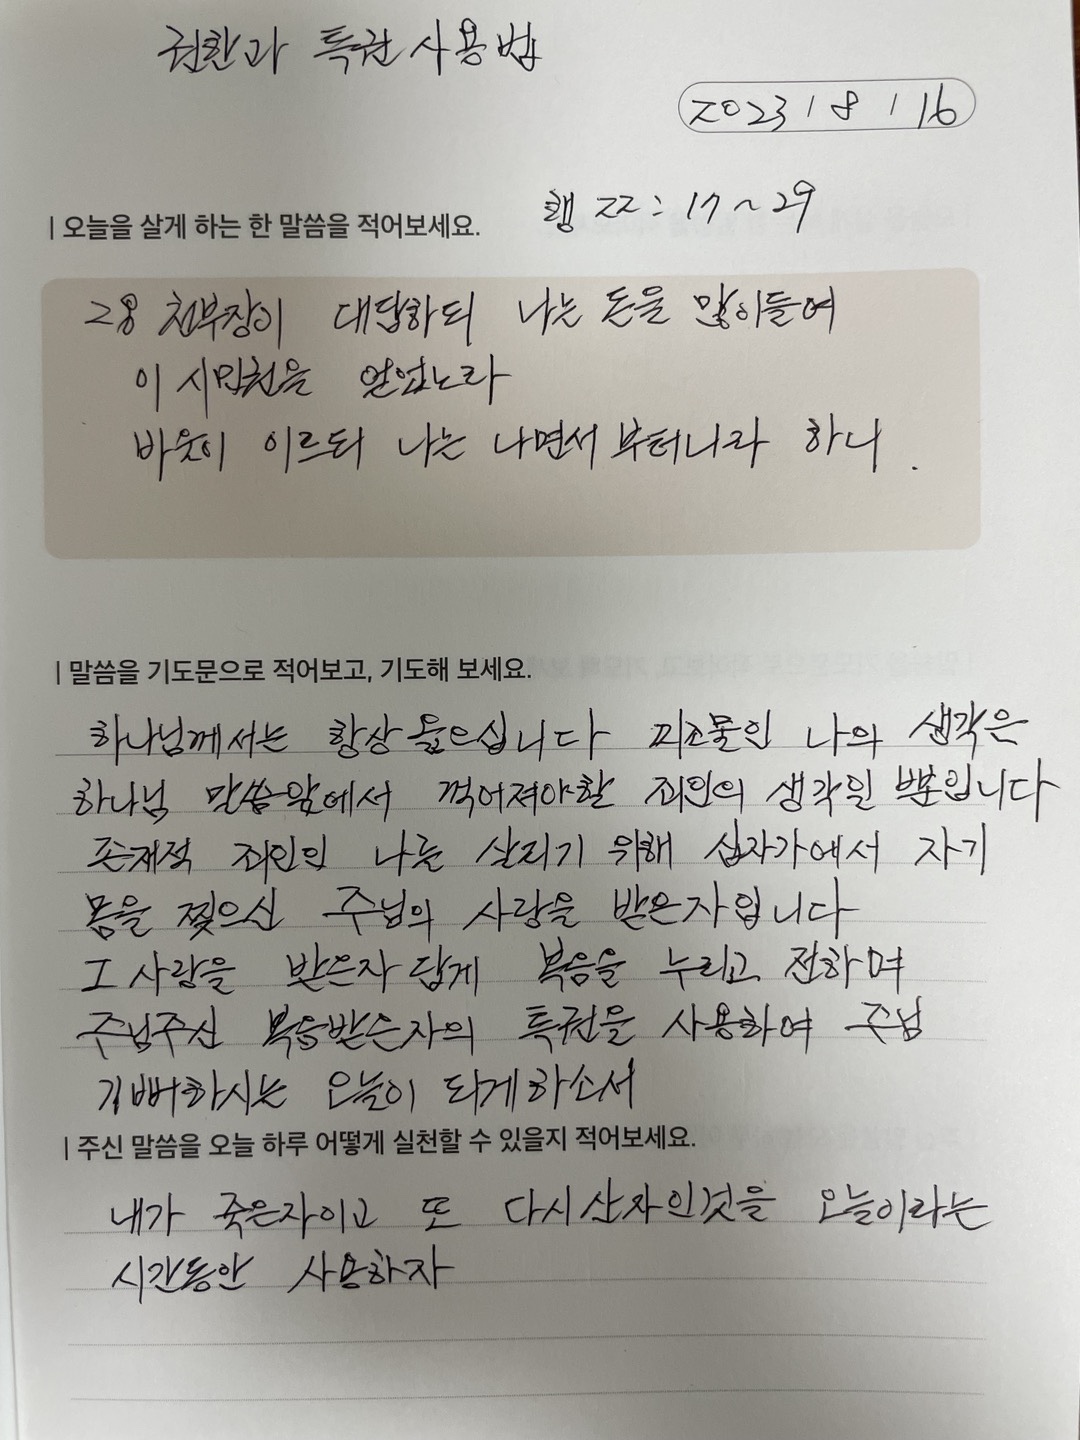 권한과 특권 사용법
2023 / 8 / 16
행 22 : 17 ~ 29
| 오늘을 살게 하는 한 말씀을 적어보세요.
28 천부장이 대답하되 나는 돈을 많이들여
이 시민권을 얻었노라
바울이 이르되 나는 나면서 부터니라 하니 .
| 말씀을 기도문으로 적어보고, 기도해 보세요.
하나님께서는 항상 옳으십니다 피조물인 나의 생각은
하나님 말씀앞에서 꺽어져야할 죄인의 생각일 뿐입니다
존재적 죄인인 나를 살리기 위해 십자가에서 자기
몸을 찢으신 주님의 사랑을 받은자입니다
그 사랑을 받은자 답게 복음을 누리고 전하며
주님주신 복음받은자의 특권을 사용하여 주님
기뻐하시는 오늘이 되게하소서
| 주신 말씀을 오늘 하루 어떻게 실천할 수 있을지 적어보세요.
내가 죽은자이고 또 다시산자인것을 오늘이라는
시간동안 사용하자